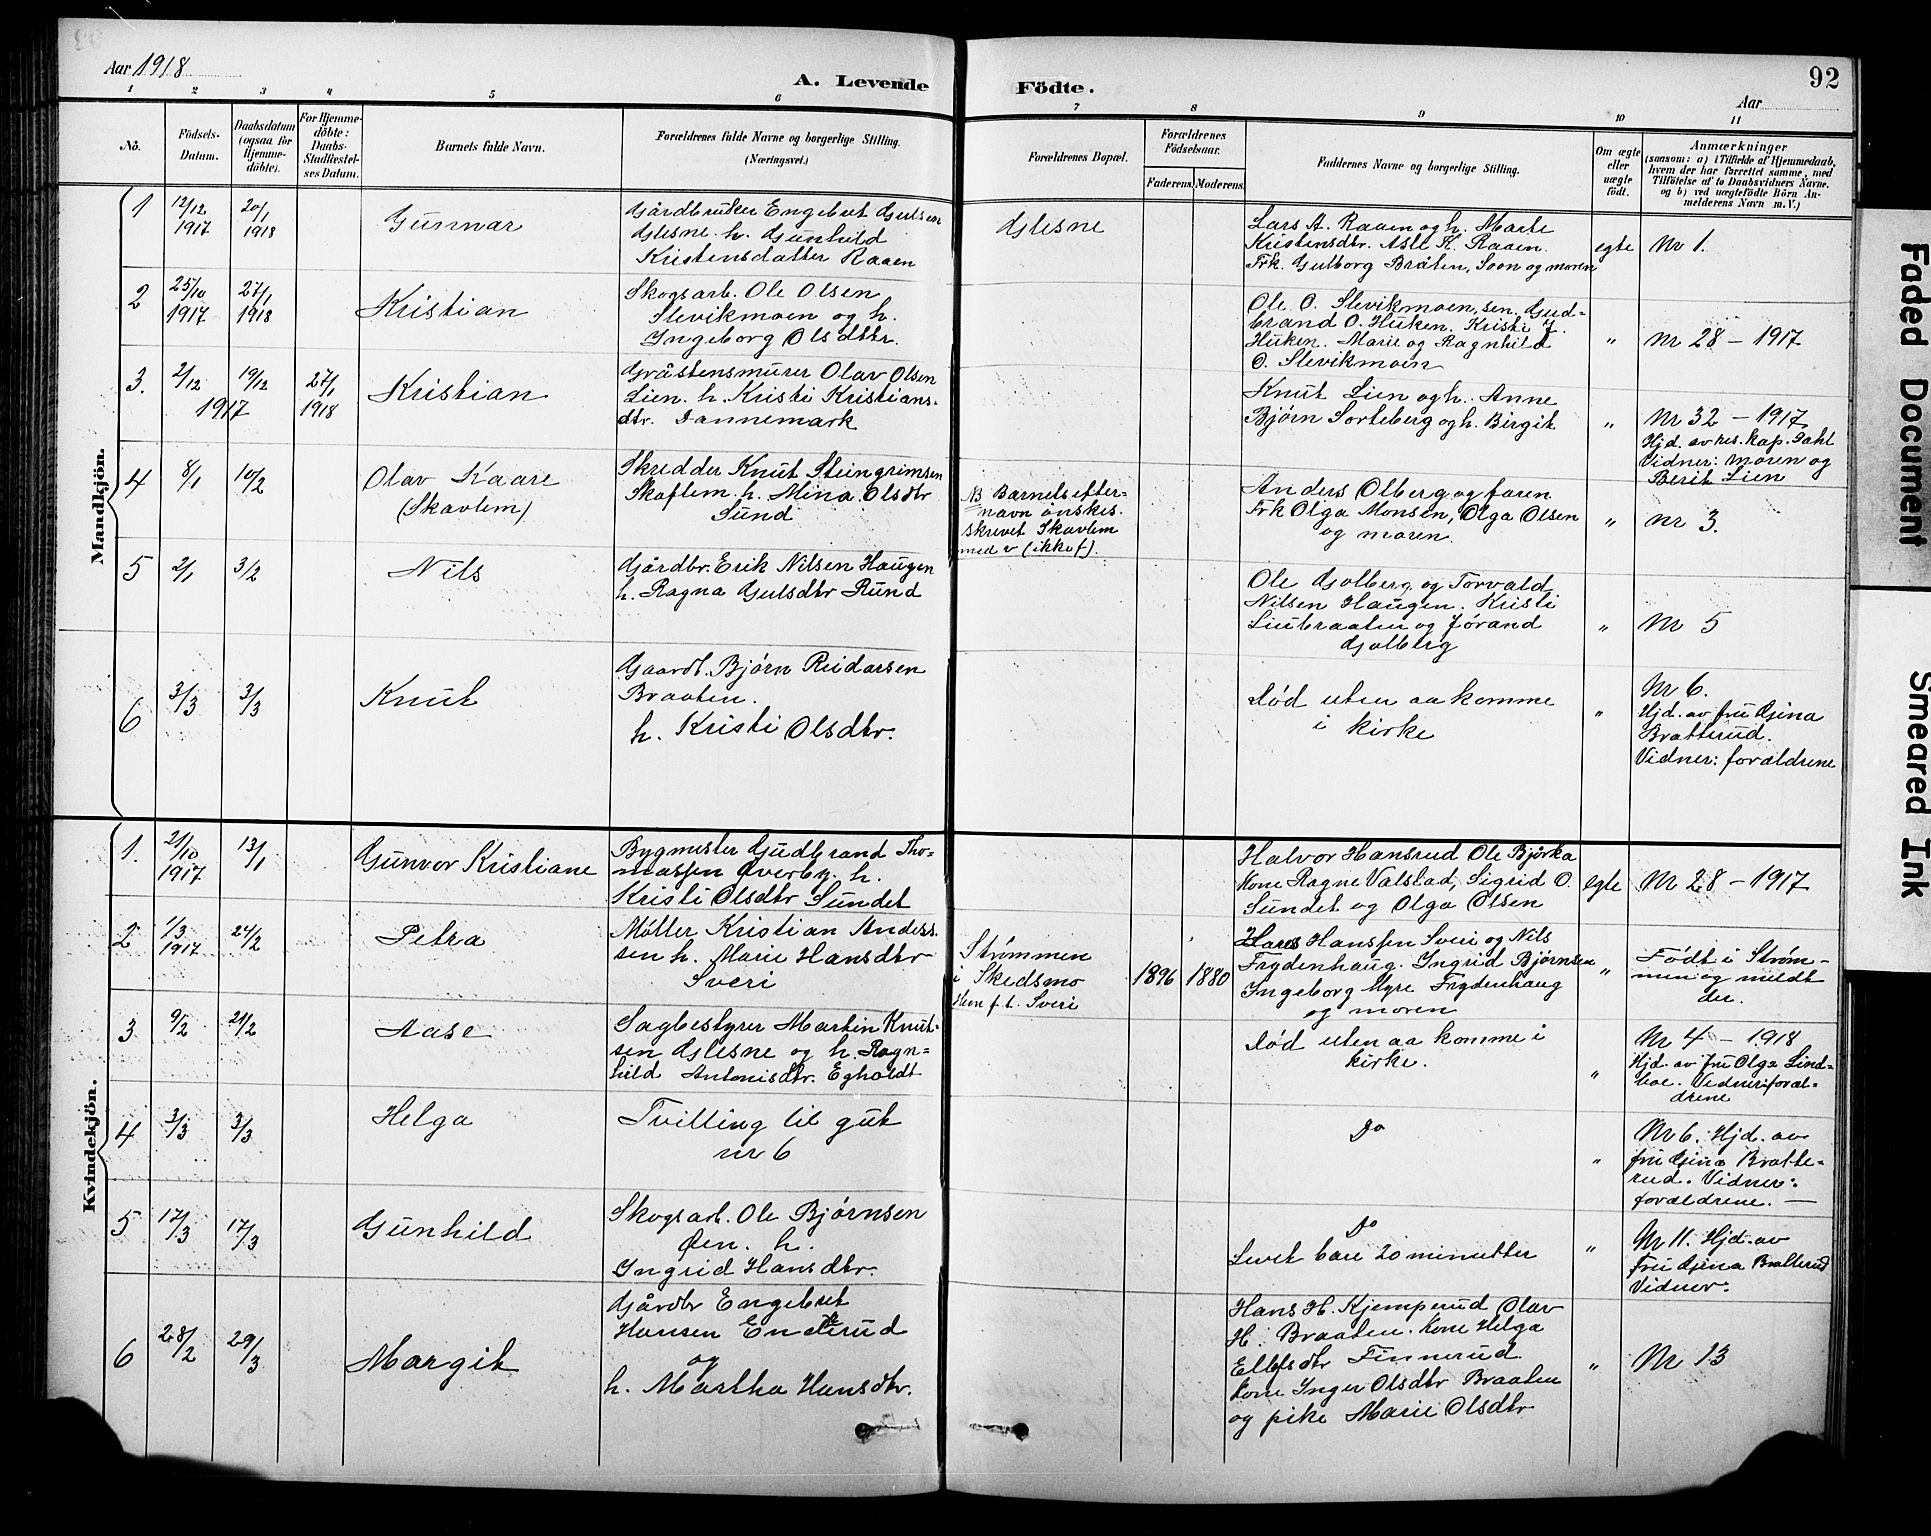 Aar 1918
A. Levende Födte.
92
Aar
1 2 3 4 5 6 7 8 9 10 11
No.
Födsels-
Datum.
Daabsdatum
(ogsaa for
Hjemme-
döbte).
For Hjemme-
döbte:
Daabs-
Stadfæstel-
ses Datum.
Barnets fulde Navn.
Forældrenes fulde Navne og borgerlige Stilling.
(Næringsvei.)
Forældrenes Bopæl.
Forældrenes
Födselsaar.
Faderens. Moderens.
Faddernes Navne og borgerlige Stilling.
Om ægte
eller
uægte
født.
Anmærkninger
(saasom: a) i Tilfælde af Hjemmedaab,
hvem der har forrettet samme, med
Tilföielse af to Daabsvidners Navne,
og b) ved uægtefödte Börn An-
melderens Navn m. V.)
Mandkjön.
1
12/12
1917
20/1
1918
Gunnar
Gårdbruker Engebret Gulsen
Glesne. h. Gunhild
Kristensdatter Raaen
Glesne
Lars A. Raaen og h. Marte
Kristensdtr. Asle K. Raaen.
Frk. Gulborg Bråten, Soon og moren
egte
Nr 1.
2
25/10
1917
27/1
1918
Kristian
Skogsarb. Ole Olsen
Slevikmoen og h.
Ingeborg Olsdttr.
Ole O. Slevikmoen, sen. Gud-
brand O. Huken. Kristi J.
Huken. Marie og Ragnhild
O. Slevikmoen
"
Nr 28 – 1917
3.
2/12
19/12
1917
27/1
1918
Kristian
Gråstensmurer Olav Olsen
Lien. h. Kristi Kristians-
dtr. Dannemark
Knut Lien og h. Anne
Bjørn Sorteberg og h. Birgit
"
Nr 32 – 1917
Hjd. av res. kap. Dahl
Vidner: moren og
Berit Lien
4
8/1
10/2
Olav Kaare
(Skavlem)
Skredder Knut Steingrimsen
Skaflem. h. Mina Olsdtr
Sund
NB Barnets efter-
navn ønskes
skrevet Skavlem
med v (ikke f).
Anders Olberg og faren
Frk Olga Monsen, Olga Olsen
og moren.
"
nr 3.
5
2/1
3/2
Nils
Gårdbr. Erik Nilsen Haugen
h. Ragna Gulsdtr Rund
Ole Golberg og Torvald
Nilsen Haugen. Kristi
Liubraaten og Jørand
Golberg
"
Nr 5
6
3/3
3/3
Knut
Gaardb. Bjørn Reidarsen
Braaten.
h. Kristi Olsdtr.
Død uten aa komme
i kirke
"
Nr 6.
Hjd. av fru Gina
Bratterud.
Vidner: forældrene
Kvindekjön.
1.
21/10
1917
13/1
Gunvor Kristiane
Bygmester Gudbrand Tho-
massen Øverby. h.
Kristi Olsdtr Sundet
Halvor Hansrud Ole Bjørka
Kone Ragne Valstad, Sigrid O.
Sundet og Olga Olsen
egte
Nr 28 – 1917
2
1/3
1917
24/2
Petra
Møller Kristian Anders-
sen h. Marie Hansdtr
Sveri
Strømmen
i Skedsmo
Hen f. t. Sveri
1896 1880
Hans Hanssen Sveri og Nils
Frydenhaug. Ingrid Bjørnsen
Ingeborg Myre Frydenhaug
og moren
"
Født i Strøm-
men og meldt
der.
3
9/2
24/2
Aase
Sagbestyrer Martin Knut-
sen Glesne og h. Ragn-
hild Antonisdtr. Egholdt
Død uten aa komme i
kirke.
"
Nr 4 – 1918
Hjd. av fru Olga Lind-
boe. Vidner: foræl-
drene
4
3/3
3/3
Helga
Tvilling til gut
nr 6
Do
"
Nr 6. Hjd. av
fru Gina Bratte-
rud. Vidner:
forældrene. –
5
17/3
17/3
Gunhild
Skogsarb. Ole Bjørnsen
Øen. h.
Ingrid Hansdtr.
Do
Levet bare 20 minutter
"
Nr 11. Hjd. av
Fru Gina Bratterud
Vidner:
6
28/2
29/3
Margit
Gårdbr Engebret
Hansen Enderud
og
h. Martha Hansdtr.
Hans H. Kjemperud Olav
H. Braaten. Kone Helga
Ellefsdtr Finnerud.
Kone Inger Olsdtr Braaten
og pike Marie Olsdtr
"
Nr 13
Faded Document
Smeared Ink